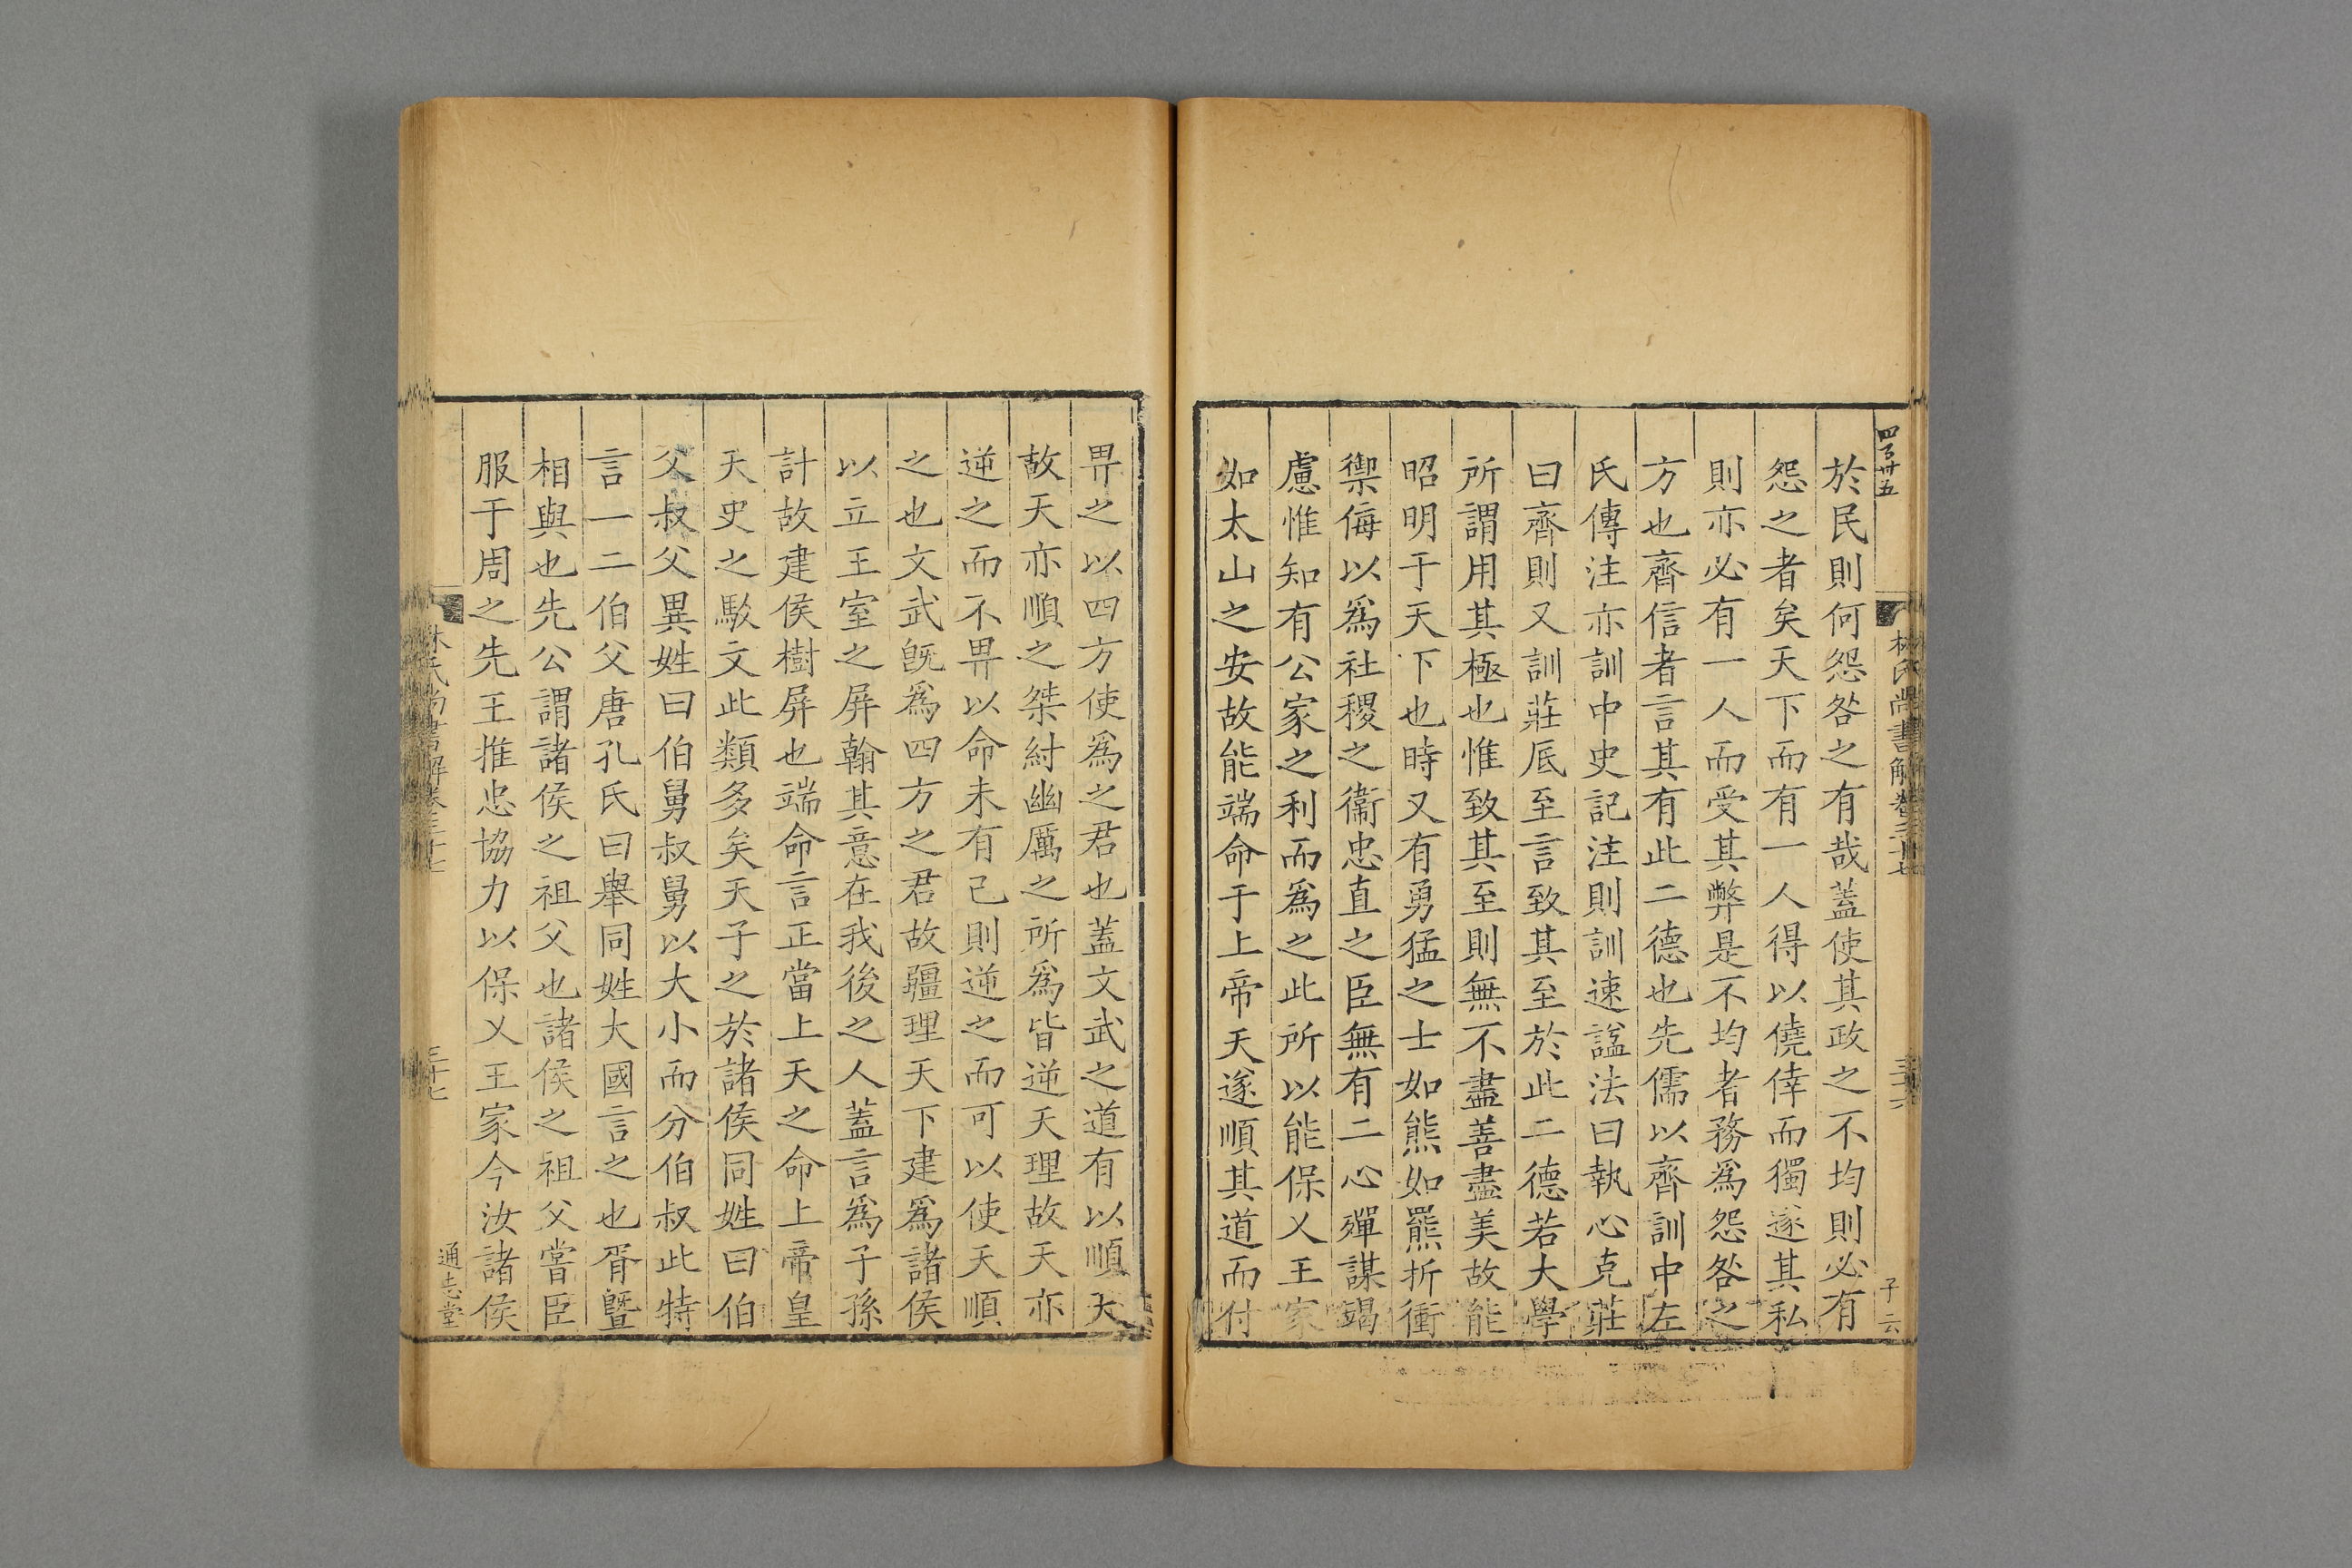 四百卅五
林氏尚書解卷三十七
三十六
子云
於民則何怨咎之有哉蓋使其政之不均則必有
怨之者矣天下而有一人得以僥倖而獨遂其私
則亦必有一人而受其弊是不均者務爲怨咎之
方也齊信者言其有此二德也先儒以齊訓中左
氏傳注亦訓中史記注則訓速諡法曰執心克莊
曰齊則又訓莊厎至言致其至於此二德若大學
所謂用其極也惟致其至則無不盡善盡美故能
昭明于天下也時又有勇猛之士如熊如羆折衝
禦侮以爲社稷之衞忠直之臣無有二心殫謀竭
慮惟知有公家之利而爲之此所以能保乂王家
如太山之安故能端命于上帝天遂順其道而付
畀之以四方使爲之君也蓋文武之道有以順天
故天亦順之桀紂幽厲之所爲皆逆天理故天亦
逆之而不畀以命未有己則逆之而可以使天順
之也文武旣爲四方之君故疆理天下建爲諸侯
以立王室之屏翰其意在我後之人蓋言爲子孫
計故建侯樹屏也端命言正當上天之命上帝皇
天史之駁文此類多矣天子之於諸侯同姓曰伯
父叔父異姓曰伯舅叔舅以大小而分伯叔此特
言一二伯父唐孔氏曰舉同姓大國言之也胥曁
相與也先公謂諸侯之祖父也諸侯之祖父嘗臣
服于周之先王推忠協力以保乂王家今汝諸侯
林氏尚書解卷三十七
三十七
通志堂